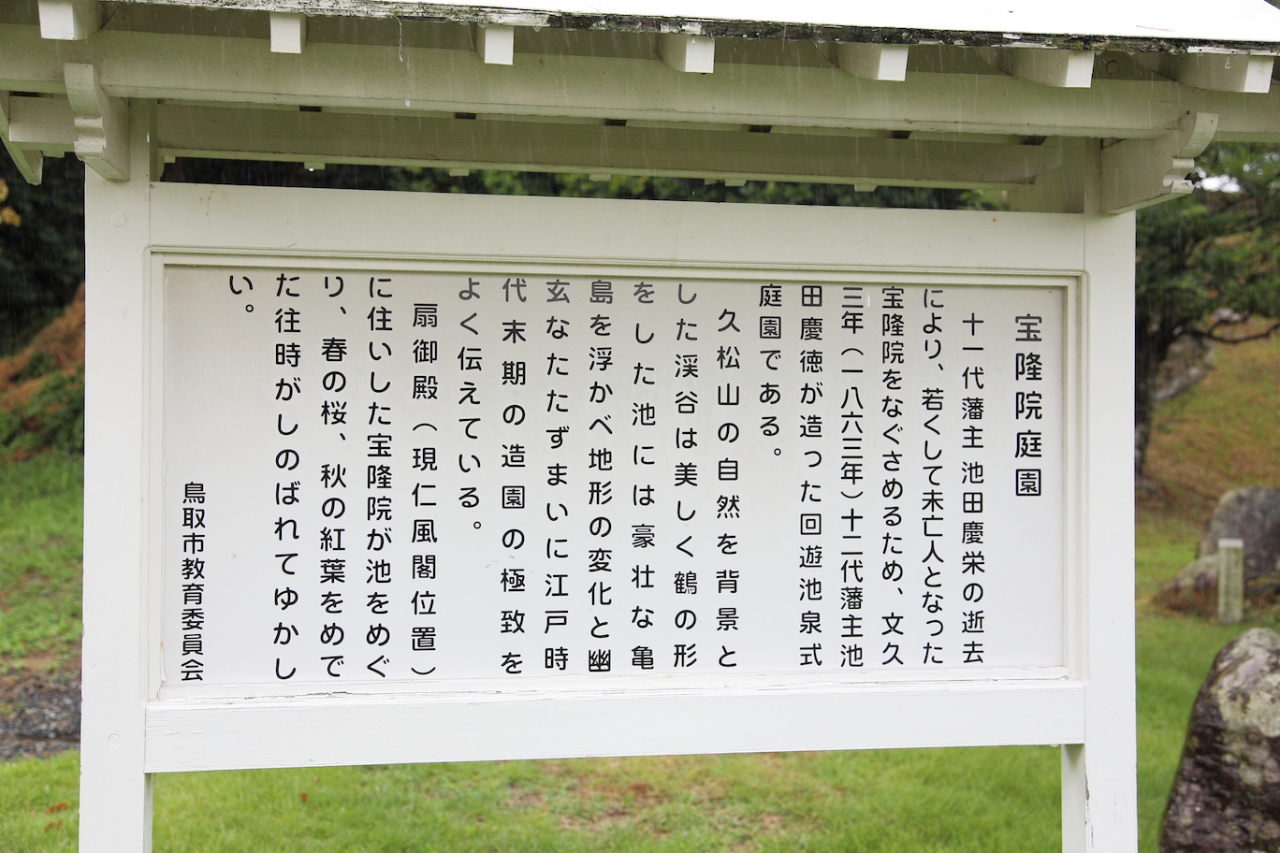 宝隆院庭園
十一代藩主池田慶栄の逝去
により、若くして未亡人となった
宝隆院をなぐさめるため、文久
三年（一八六三年）十二代藩主池
田慶徳が造った回遊池泉式
庭園である。
久松山の自然を背景と
した渓谷は美しく鶴の形
をした池には豪壮な亀
島を浮かべ地形の変化と幽
玄なたたずまいに江戸時
代末期の造園の極致を
よく伝えている。
扇御殿（現仁風閣位置）
に住いした宝隆院が池をめぐ
り、春の桜、秋の紅葉をめで
た往時がしのばれてゆかし
い。
鳥取市教育委員会